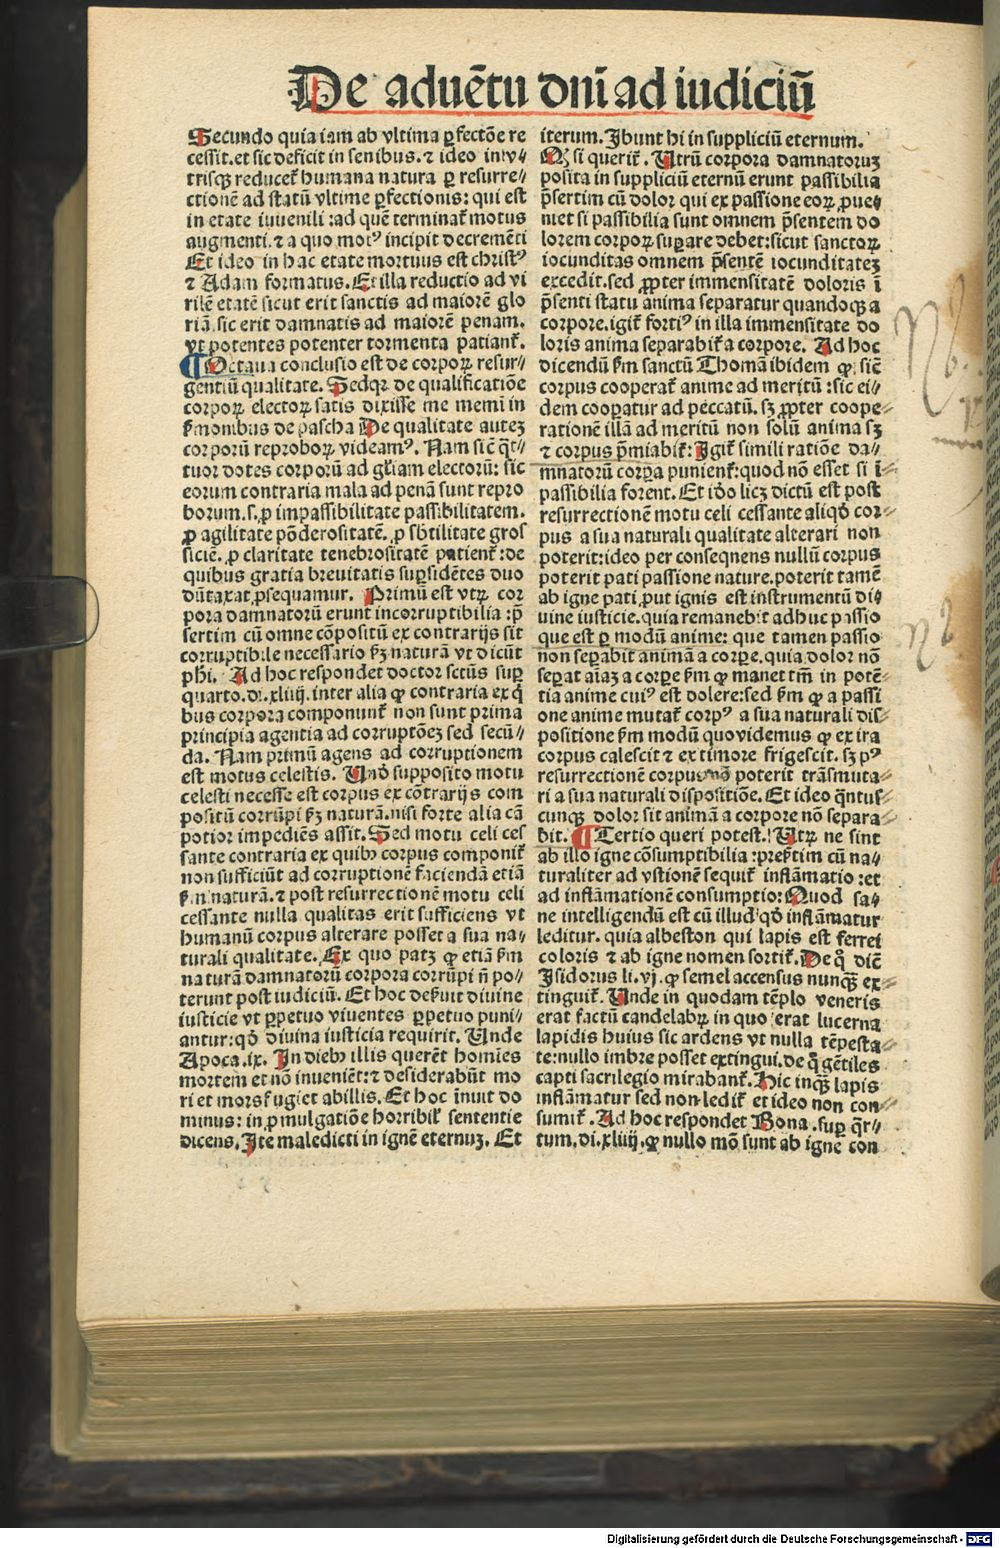 De aduētu dn̄i ad iudiciū
Secundo quia iam ab vltima ꝑfectōe re
cessit. et sic deficit in senibus. ⁊ ideo in vͥ//
trisqꝫ reducet̉ humana natura ꝑ resurre//
ctionē ad statū vltime ꝑfectionis: qui est
in etate iuuenili : ad quē terminat̉ motus
augmenti. ⁊ a quo motꝰ incipit decremēti
Et ideo in hac etate mortuus est christꝰ
⁊ Adam formatus. Et illa reductio ad vi
rilē etatē sicut erit sanctis ad maiorē glo
riā. sic erit damnatis ad maiorē penam.
vt potentes potenter tormenta patiant̉.
¶ Octaua conclusio est de corpoꝝ resur//
gentiū qualitate. Sed qꝛ de qualificatiōe
corpoꝝ electoꝝ satis dixisse me memi in
ẜmonibus de pascha De qualitate autez
corporū reproboꝝ videamꝰ. Nam sic̄ q̈t//
tuor dotes corporū ad gl̄iam electorū: sic
eorum contraria mala ad penā sunt repro
borum. s. ꝓ impassibilitate passibilitatem.
ꝓ agilitate pōderositatē. ꝓ sb̄tilitate gros
siciē. ꝓ claritate tenebrositatē patient̉: de
quibus gratia breuitatis suꝑsidētes duo
dūtaxat ꝓsequamur. Primū est vtꝝ cor
pora damnatorū erunt incorruptibilia : p̄
sertim cū omne cōpositū ex contrarijs sit
corruptibile necessario ẜꝫ naturā vt dicūt
phi. Ad hoc respondet doctor sctūs suꝑ
quarto. di. xliiij. inter alia ꝙ contraria ex q̇
bus corpora componunt̉ non sunt prima
principia agentia ad corruptōeꝫ sed secū//
da. Nam primū agens ad corruptionem
est motus celestis. Unō supposito motu
celesti necesse est corpus ex cōtrarijs com
positū corrūpi ẜꝫ naturā. nisi forte alia cā
potior impediēs assit. Sed motu celi ces
sante contraria ex quibꝰ corpus componit̉
non sufficiūt ad corruptionē faciendā etiā
ẜm naturā. ⁊ post resurrectionē motu celi
cessante nulla qualitas erit sufficiens vt
humanū corpus alterare posset a sua na//
turali qualitate. Ex quo patꝫ ꝙ etiā ẜm
naturā damnatorū corpora corrūpi n̄ po//
terunt post iudiciū. Et hoc deẜuit diuine
iusticie vt ꝑpetuo viuentes ꝑpetuo puni//
antur: qō diuina iusticia requirit. Unde
Apoca. ix. In diebꝰ illis querēt homīes
mortem et nō inueniēt: ⁊ desiderabūt mo
ri et mors fugiet ab illis. Et hoc īnuit do
minus: in ꝓmulgatiōe horribil' sententie
dicens. Ite maledicti in ignē eternuꝫ. Et
iterum. Ibunt hi in suppliciū eternum.
Qꝫ si querit̉. Utrū corpora damnatoruꝫ
posita in suppliciū eternū erunt passibilia
p̄sertim cū dolor qui ex passione eoꝝ ꝓue//
niet si passibilia sunt omnem p̄sentem do
lorem corpoꝝ suꝑare debet: sicut sanctoꝝ
iocunditas omnem p̄sentē iocunditateꝫ
excedit. sed ꝓpter immensitatē doloris ī
p̄senti statu anima separatur quandoqꝫ a
corpore. igit̉ fortiꝰ in illa immensitate do
loris anima separabit̉ a corpore. Ad hoc
dicendū ẜm sanctū Thomā ibidem ꝙ sic̄
corpus cooperat̉ anime ad meritū : sic ei//
dem cooꝑatur ad peccatū. sꝫ ꝓpter coope//
rationē illā ad meritū non solū anima sꝫ
⁊ corpus p̄miabit̉: Igit̉ simili ratiōe da//
mnatorū corꝑa punient̉: quod nō esset si ī//
passibilia forent. Et iō licꝫ dictū est post
resurrectionē motu celi cessante aliqō cor//
pus a sua naturali qualitate alterari non
poterit: ideo per conseqnens nullū corpus
poterit pati passione nature. poterit tamē
ab igne pati ꝓut ignis est instrumentū di//
uine iusticie. quia remanebit adhuc passio
que est ꝑ modū anime: que tamen passio
non seꝑabit animā a corꝑe. quia dolor nō
seꝑat aīaꝫ a corꝑe ẜm ꝙ manet tm̄ in potē//
tia anime cuiꝰ est dolere: sed ẜm ꝙ a passi
one anime mutat̉ corpꝰ a sua naturali dis//
positione ẜm modū quo videmus ꝙ ex ira
corpus calescit ⁊ ex timore frigescit. sꝫ pꝰ
resurrectionē corpus nō poterit trāsmuta//
ri a sua naturali dispositiōe. Et ideo q̈ntus//
cunqꝫ dolor sit animā a corpore nō separa//
bit. ¶ Tertio queri potest. Utꝝ ne sint
ab illo igne cōsumptibilia : presertim cū na//
turaliter ad vstionē sequit̉ inflāmatio : et
ad inflāmationē consumptio: Quod sa//
ne intelligendū est cū illud qō inflāmatur
leditur. quia albeston qui lapis est ferrei
coloris ⁊ ab igne nomen sortit̉. De q̇ dic̄
Isidorus li. vj. ꝙ semel accensus nunqꝫ ex//
tinguit̉. Unde in quodam tēplo veneris
erat factū candelabꝝ in quo erat lucerna
lapidis huius sic ardens vt nulla tēpesta//
te: nullo imbre posset extingui. de q̇ gētiles
capti sacrilegio mirabant̉. Hic inqꝫ lapis
inflāmatur sed non ledit̉ et ideo non con//
sumit̉. Ad hoc respondet Bona. suꝑ q̈r//
tum. di. xliiij. ꝙ nullo mō sunt ab igne con
Nb.
Digitalisierung gefördert durch die Deutsche Forschungsgemeinschaft - DFG